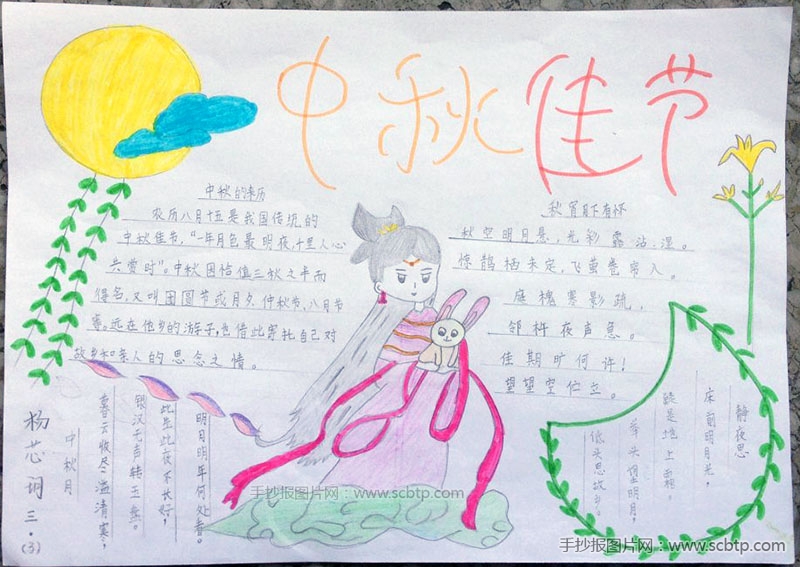 中秋佳节
中秋的来历
农历八月十五是我国传统的
中秋佳节，“一年月色最明夜，千里人心
共赏时”。中秋因恰值三秋之半而
得名，又叫团圆节或月夕 仲秋节，八月节
等。远在他乡的游子，也借此寄托自己对
故乡和亲人的思念之情。
秋宵月下有怀
秋空明月悬，光彩露沾湿。
惊鹊栖未定，飞萤卷帘入。
庭槐寒影疏，
邻杵夜声急。
佳期旷何许！
望望空伫立。
静夜思
床前明月光，
疑是地上霜。
举头望明月，
低头思故乡。
明月明年何处看。
此生此夜不长好，
银汉无声转玉盘。
暮云收尽溢清寒，
中秋月
杨芯词 三·(3)
手抄报图片网：www.scbtp.com
手抄报图片网：www.scbtp.com